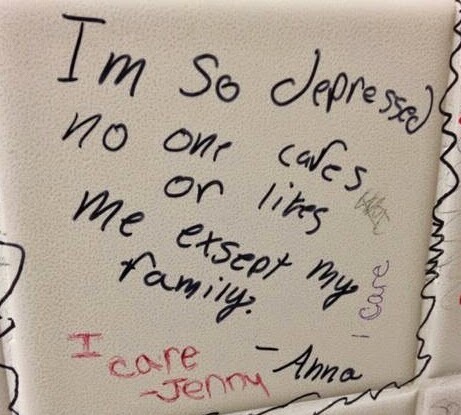 Im so depressed
no one cares
or likes
me exsept my
family.
-Anna
I care
I care
-Jenny